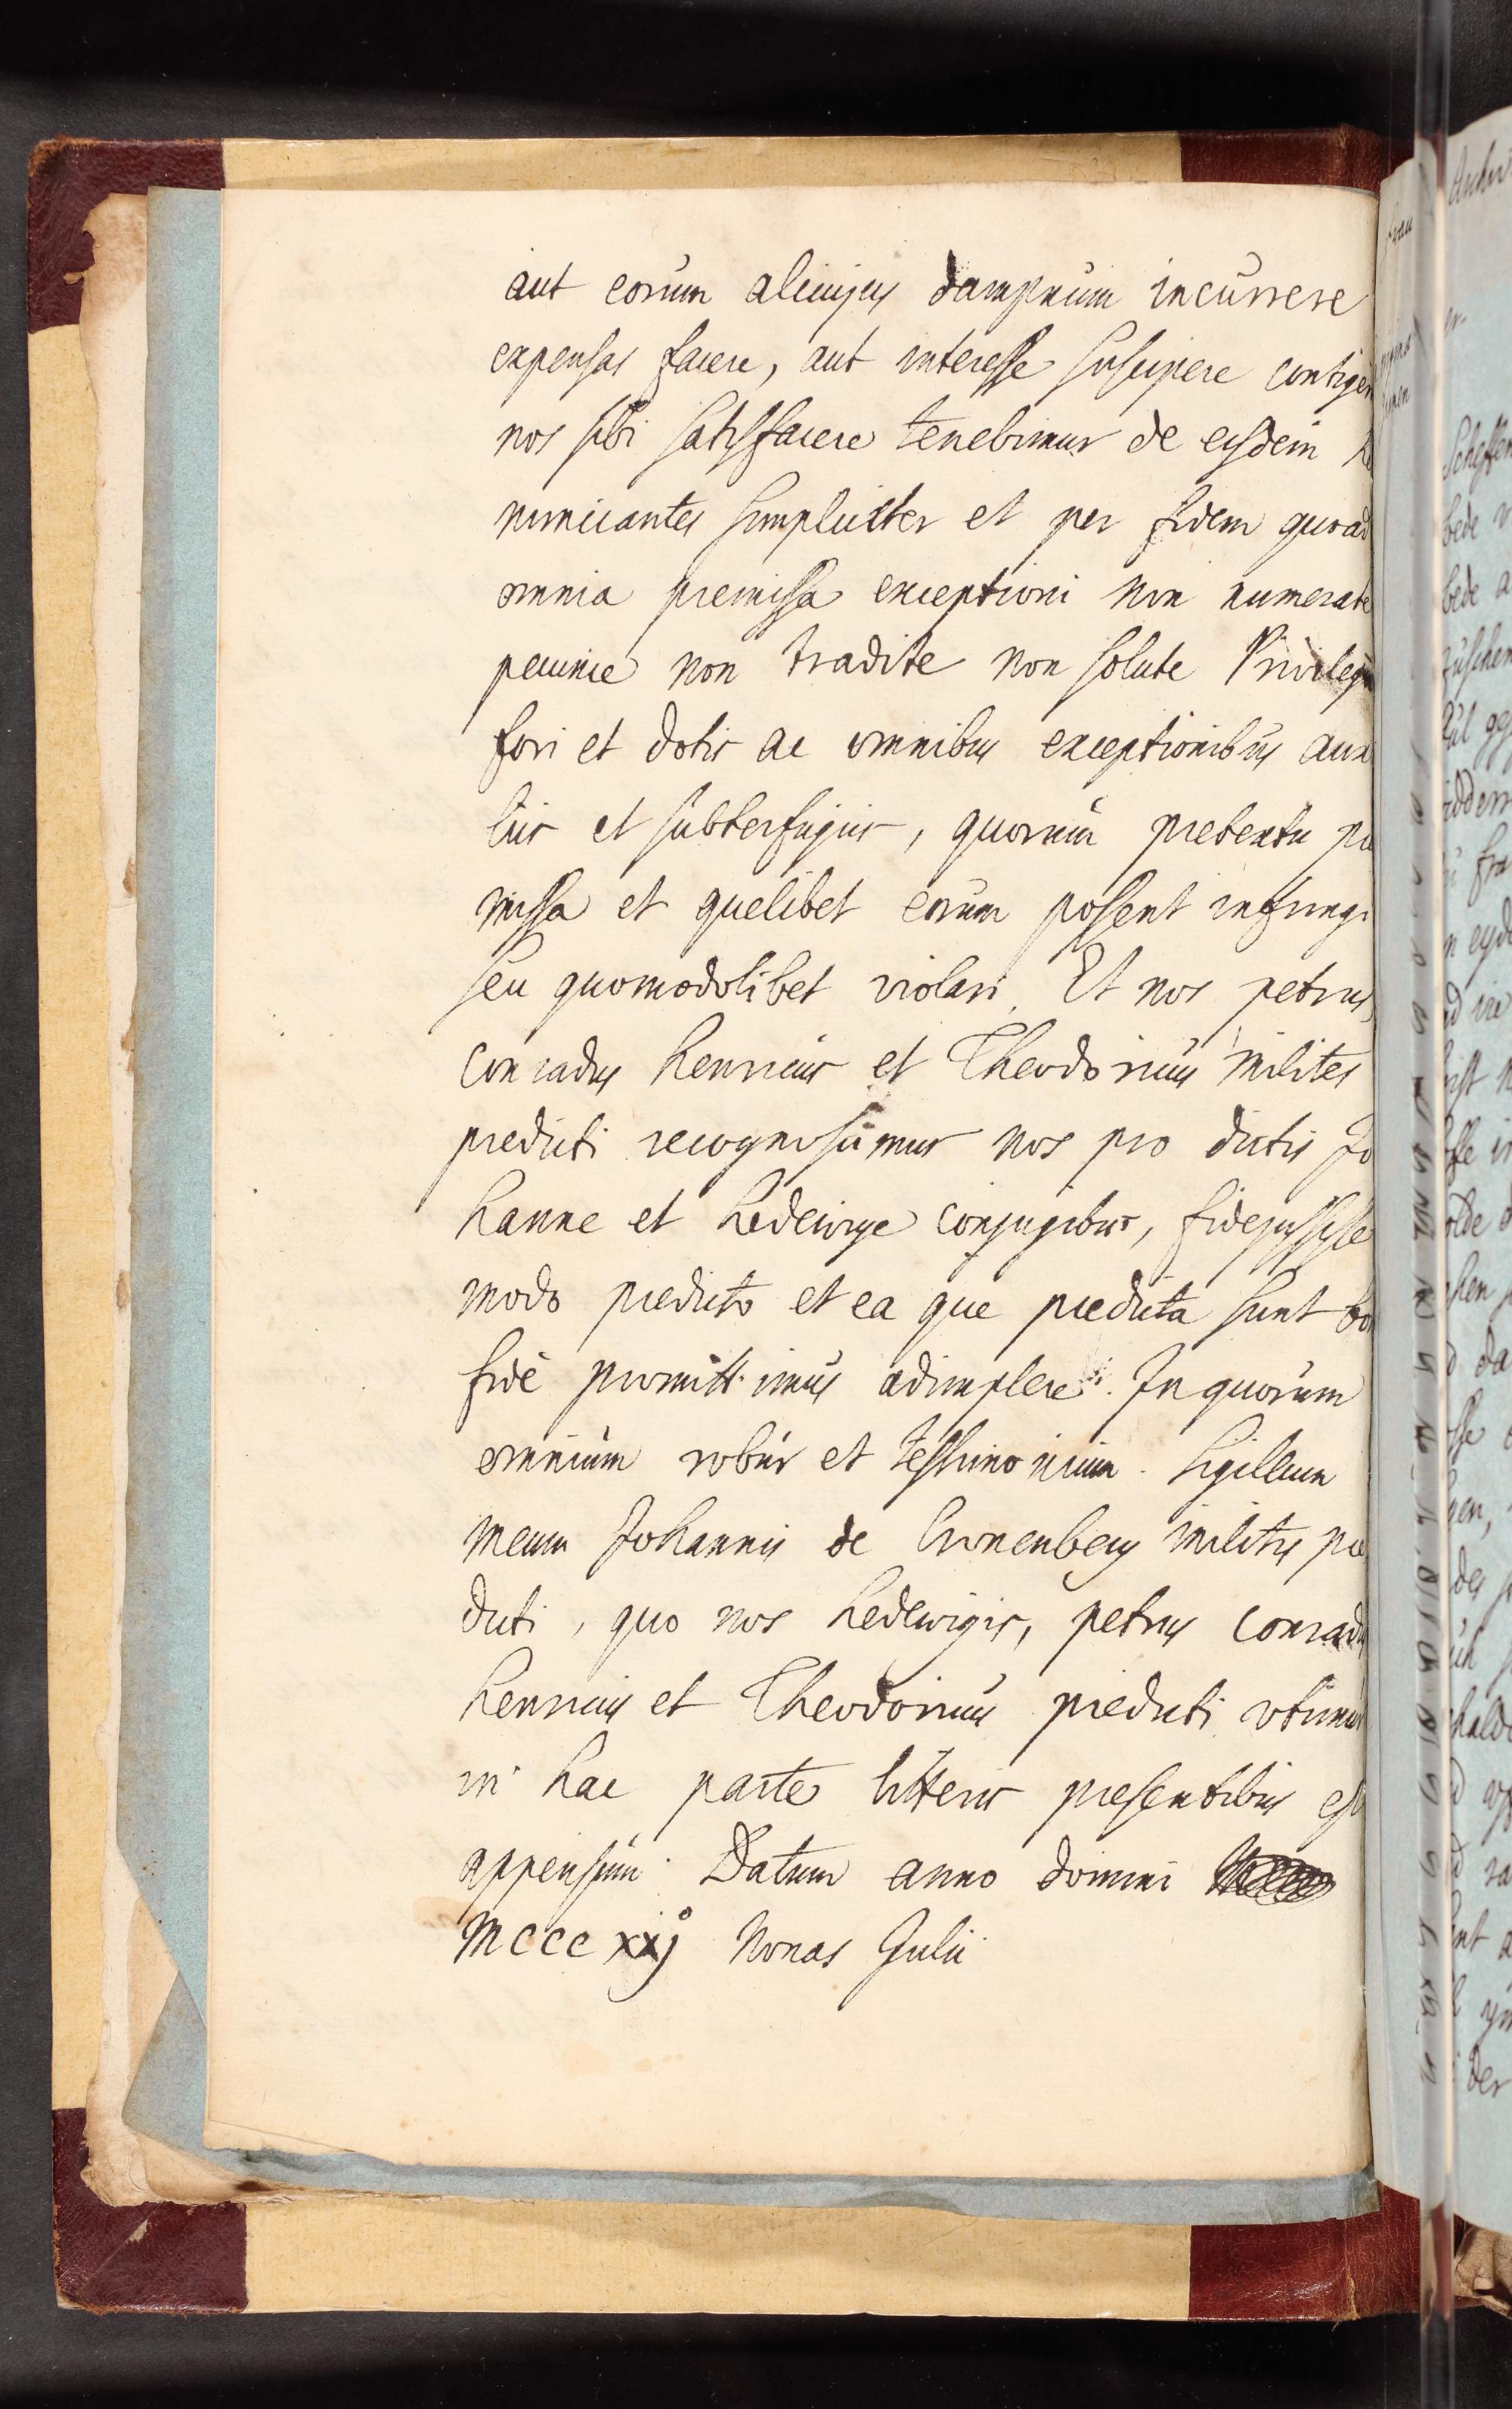 aut eorum alicujus dampnum incurrere
expensas facere, aut interesse suscipere contiger
nos sibi satisfacere tenebimur de eisdem Re
nunciantes simpliciter et per fidem quoad
omnia premissa exceptioni non numerate
pecunie non tradite non solute Privilegi
fori et dotis ac omnibus exceptionibus auxi
liis et subterfugiis, quorum pretextu pre
missa et quelibet eorum possent infringi
seu quomodolibet violari. Et nos petrus,
Conradus henricus et Theodoricus milites
predicti recognoscimus nos pro dictis Jo
hanne et hedewige conjugibus, fidejussisse
modo predicto et ea que predicta sunt bo
fide promittimus adimplere. In quorum
omnium robur et testimonium. Sigillum
meum Johannis de Cronenberg militis pre
dicti, quo nos hedewigis, petrus Conradus
henricus et Theodoricus predicti utimur
in hac parte litteris presentibus est
appensum. Datum anno domini
MCCCxxj° Nonas Julii